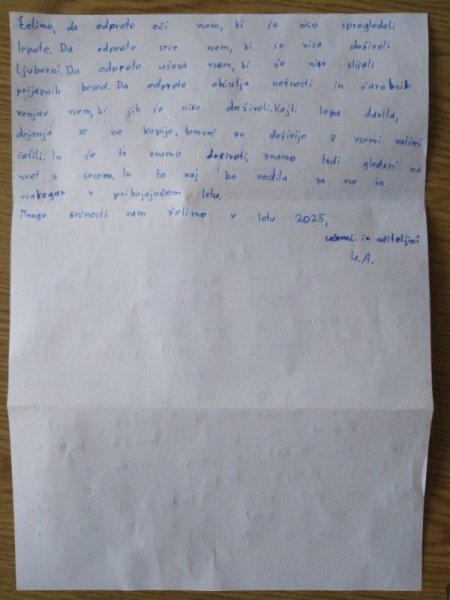 Želimo, da odprete oči vsem, ki še niso spregledali
lepote. Da odprete srce vsem, ki še niso doživeli
ljubezni. Da odprete ušesa vsem, ki še niso slišali
prijaznih besed. Da odprete občutja nežnosti in čarobnih
vonjav vsem, ki jih še niso doživeli. Kajti lepa darila,
dejanja se ne kupijo, temveč se doživije z vsemi našimi
čutili. In če to znamo doživeti, znamo tudi gledati na
svet s srcem. In to naj bo vodila za vse in
vsakogar v prihajajočem letu.
Mnogo srčnosti vam želimo v letu 2025,
učenci in učiteljici
U.A.